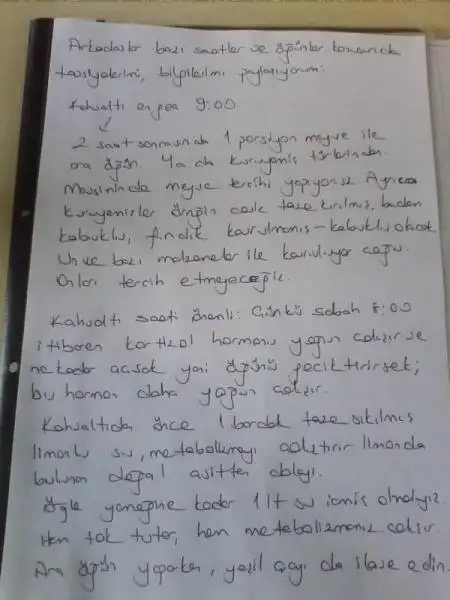 Arkadaşlar bazı saatler ve öğünler konusunda
tavsiyelerimi, bilgilerimi paylaşıyorum:
Kahvaltı en geç 9:00
2 saat sonrasında 1 porsiyon meyve ile
ara öğün. Ya da kuruyemiş türlerinden.
Mevsiminde meyve tercihi yapıyoruz Ayrıca
kuruyemişler örneğin ceviz taze kırılmış, badem
kabuklu, fındık kavrulmamış - kabuklu olacak
Un ve bazı malzemeler ile kavruluyor çoğu.
Onları tercih etmeyeceğiz.
Kahvaltı saati önemli: Çünkü sabah 8:00
itibaren kortizol hormonu yoğun çalışır ve
ne kadar açsak yani öğünü geciktirirsek;
bu hormon daha yoğun çalışır.
Kahvaltıdan önce 1 bardak taze sıkılmış
limonlu su, metabolizmayı çalıştırır limonda
bulunan doğal asitten dolayı.
Öğle yemeğine kadar 1 lt su içmiş olmalıyız.
Hem tok tutar, hem metabolizmamız çalışır.
Ara öğün yaparken, yeşil çayı da ilave edin.